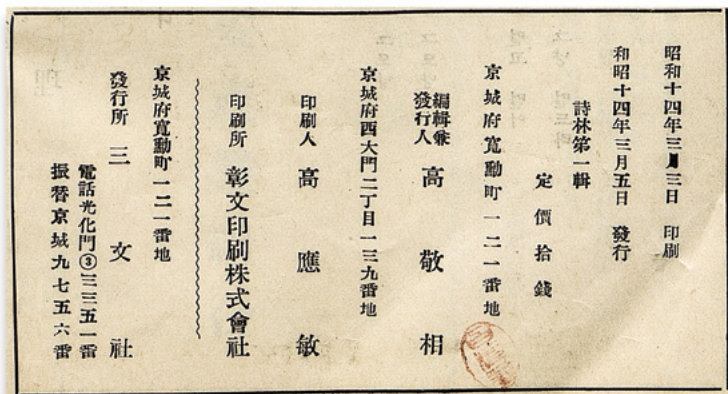 昭和十四年三月三日 印刷
和昭十四年三月五日 發行
詩林第一輯
定價拾錢
京城府寬勳町一二一番地
編輯兼
發行人 高敬相
京城府西大門二丁目一三九番地
印刷人 高應敏
印刷所 彰文印刷株式會社
京城府寬勳町一二一番地
發行所 三文社
電話光化門③三三五一番
振替京城九七五六番